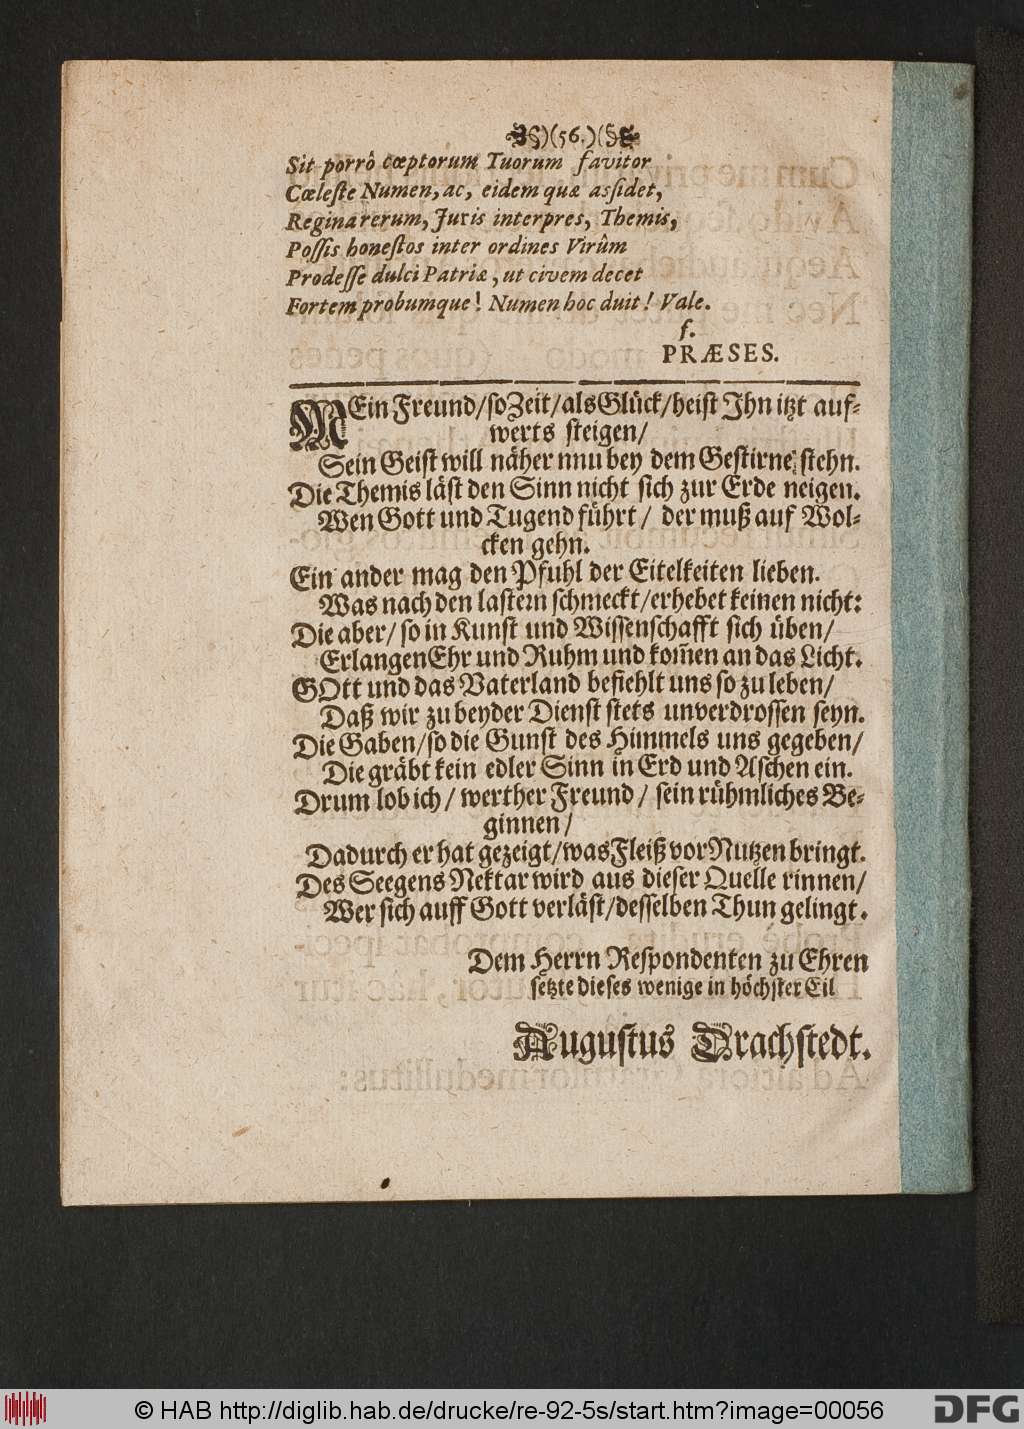 )(56.)(
Sit porrò cœptorum Tuorum favitor
Cœleste Numen, ac, eidem quæ assidet,
Regina rerum, Juris interpres, Themis,
Possis honestos inter ordines Virûm
Prodesse dulci Patriæ, ut civem decet
Fortem probumque! Numen hoc duit! Vale.
f.
PRÆSES.
MEin Freund/so Zeit/als Glück/heist Jhn itzt auf-
werts steigen/
Sein Geist will näher nnu bey dem Gestirne stehn.
Die Themis läst den Sinn nicht sich zur Erde neigen.
Wen Gott und Tugend führt/ der muß auf Wol-
cken gehn.
Ein ander mag den Pfuhl der Eitelkeiten lieben.
Was nach den lastern schmeckt/erhebet keinen nicht:
Die aber/ so in Kunst und Wissenschafft sich üben/
Erlangen Ehr und Ruhm und kom̃en an das Licht.
GOtt und das Vaterland befiehlt uns so zu leben/
Daß wir zu beyder Dienst stets unverdrossen seyn.
Die Gaben/so die Gunst des Himmels uns gegeben/
Die gräbt kein edler Sinn in Erd und Aschen ein.
Drum lob ich/ werther Freund/ sein rühmliches Be-
ginnen/
Dadurch er hat gezeigt/was Fleiß vor Nutzen bringt.
Des Seegens Nektar wird aus dieser Quelle rinnen/
Wer sich auff Gott verläst/desselben Thun gelingt.
Dem Herrn Respondenten zu Ehren
setzte dieses wenige in höchster Eil
Augustus Drachstedt.
© HAB http://diglib.hab.de/drucke/re-92-5s/start.htm?image=00056
DFG